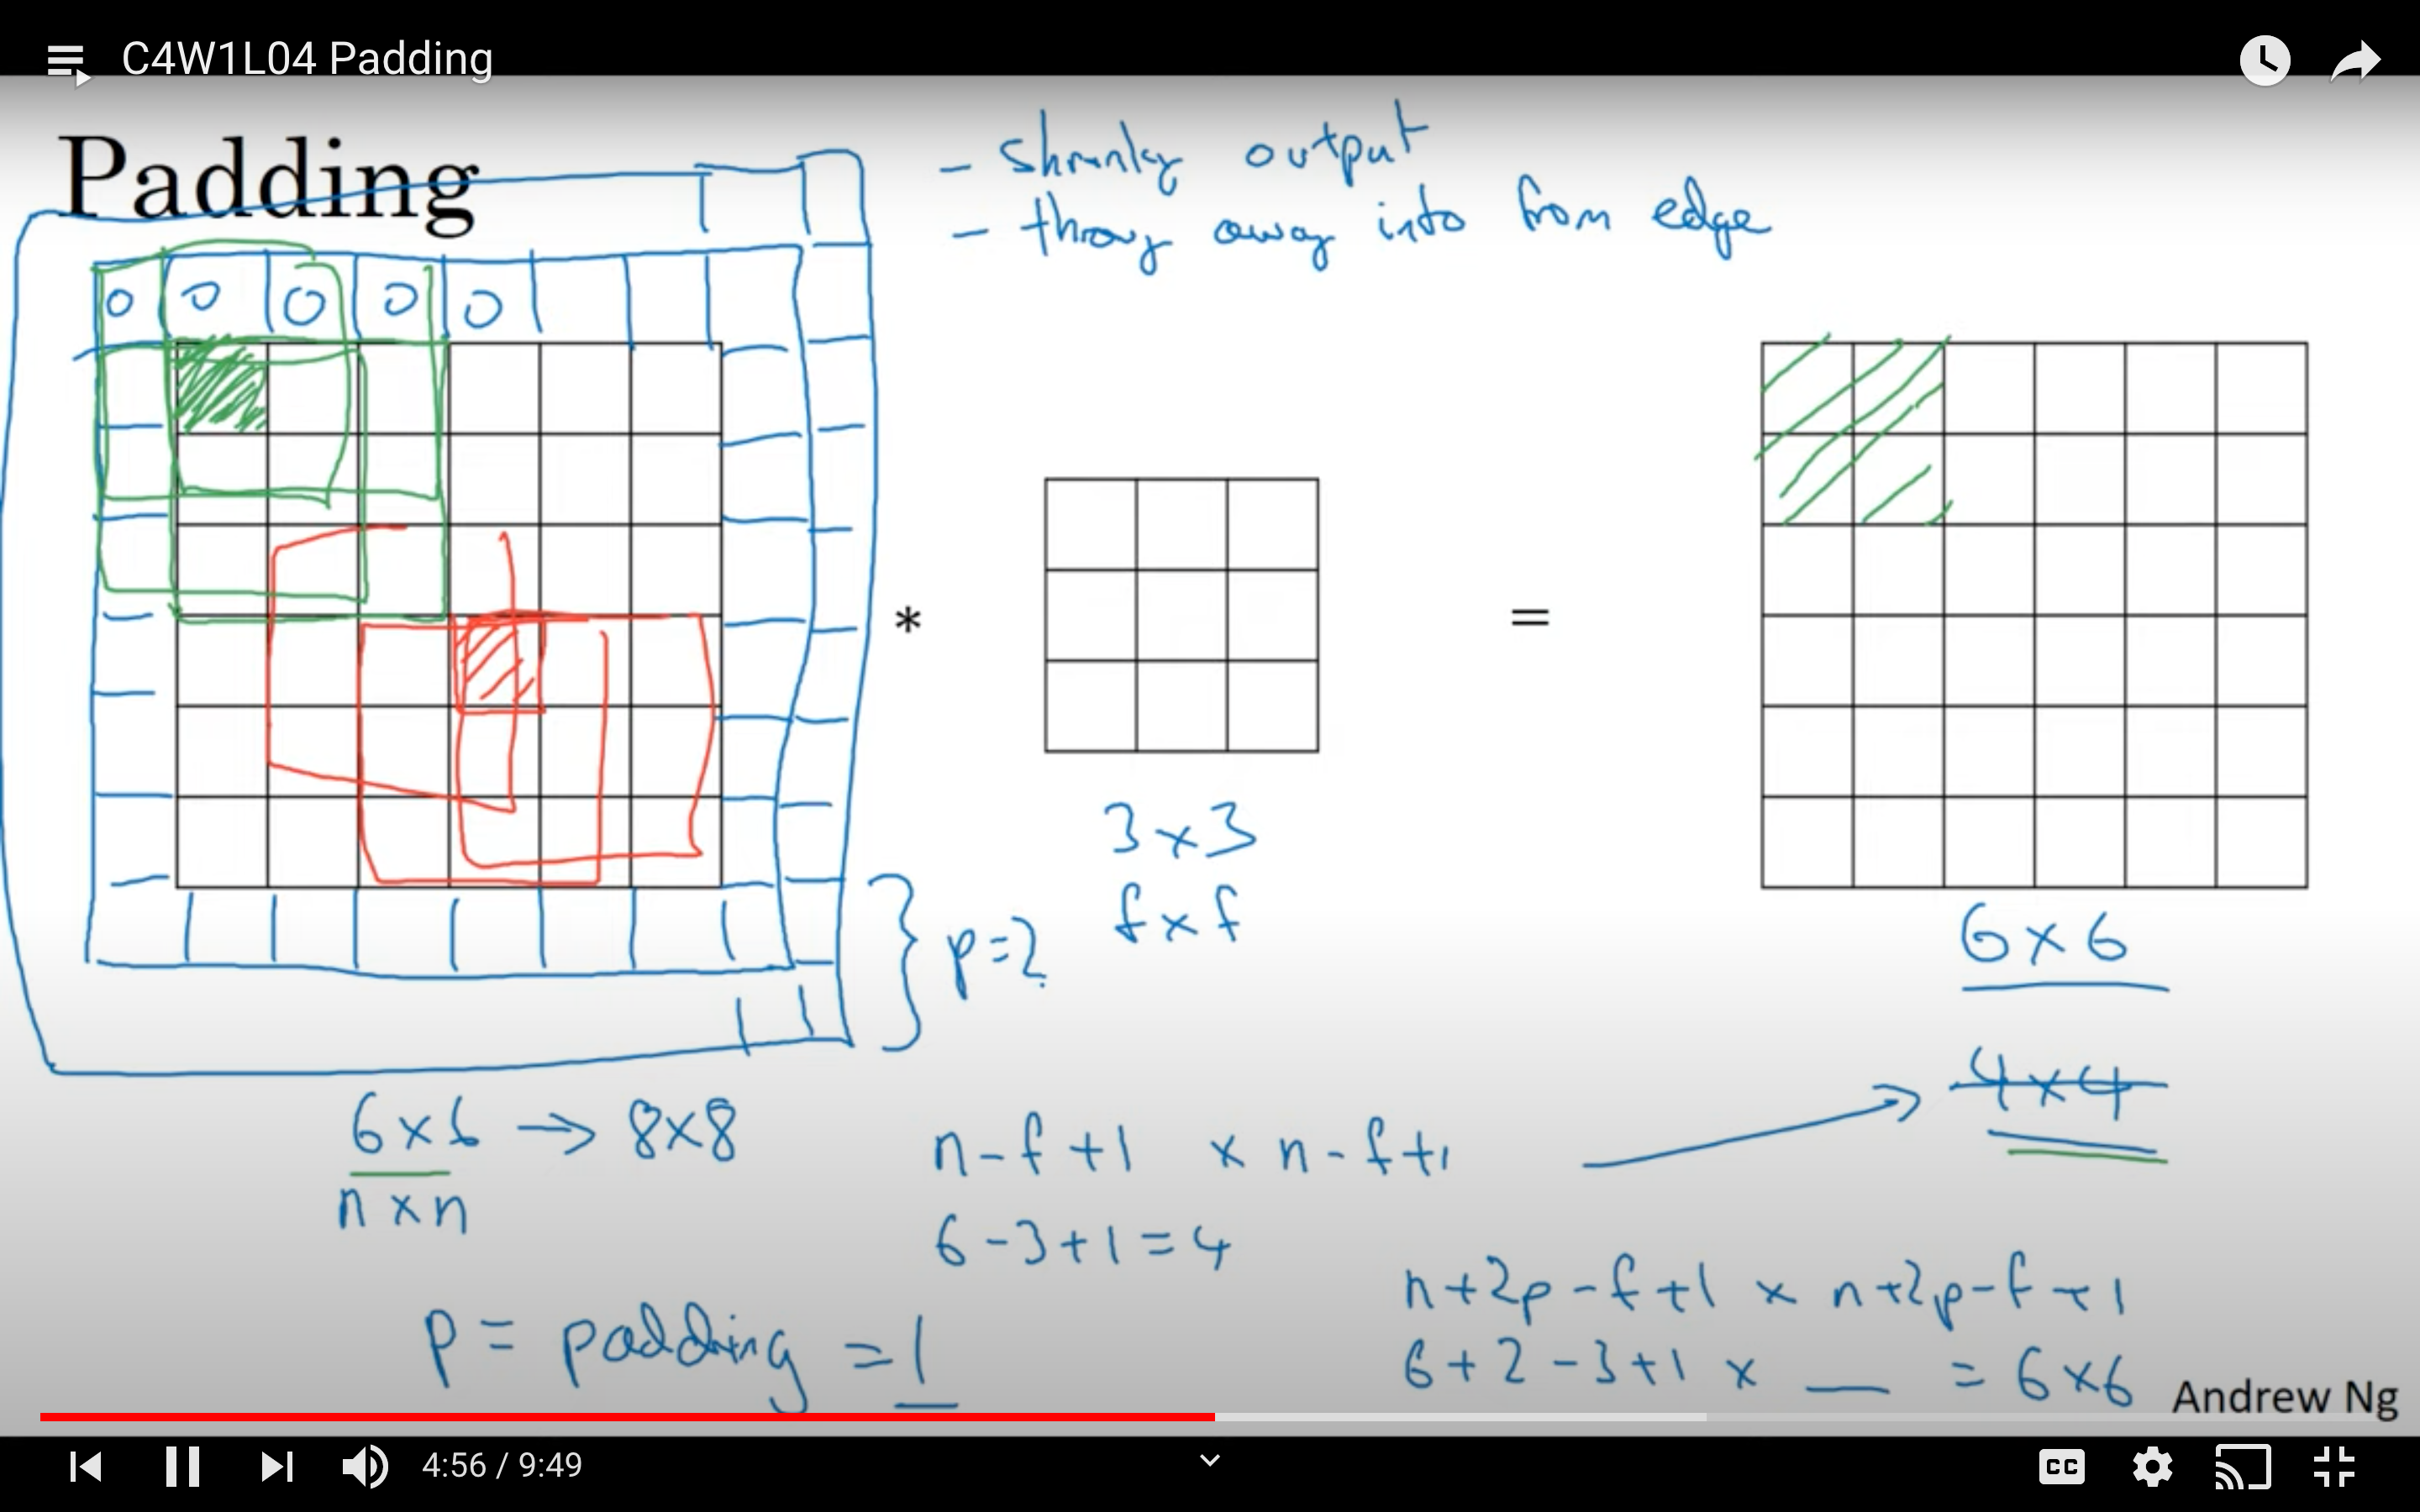 C4W1L04 Padding
Padding
- shrinky output
- throw away info from edge
0 0 0 0 0
*
=
3 x 3
f x f
p=2
6 x 6
4 x 4
6 x 6 → 8 x 8
n x n
n - f + 1 x n - f + 1
6 - 3 + 1 = 4
p = padding = 1
n + 2p - f + 1 x n + 2p - f + 1
6 + 2 - 3 + 1 x __ = 6 x 6
Andrew Ng
4:56 / 9:49
CC